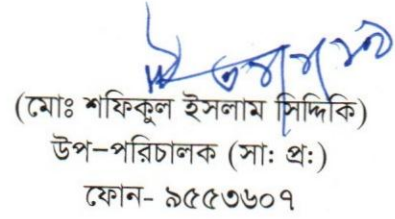 (মোঃ শফিকুল ইসলাম সিদ্দিকি)
উপ-পরিচালক (সা: প্র:)
ফোন- ৯৫৫৩৬০৭